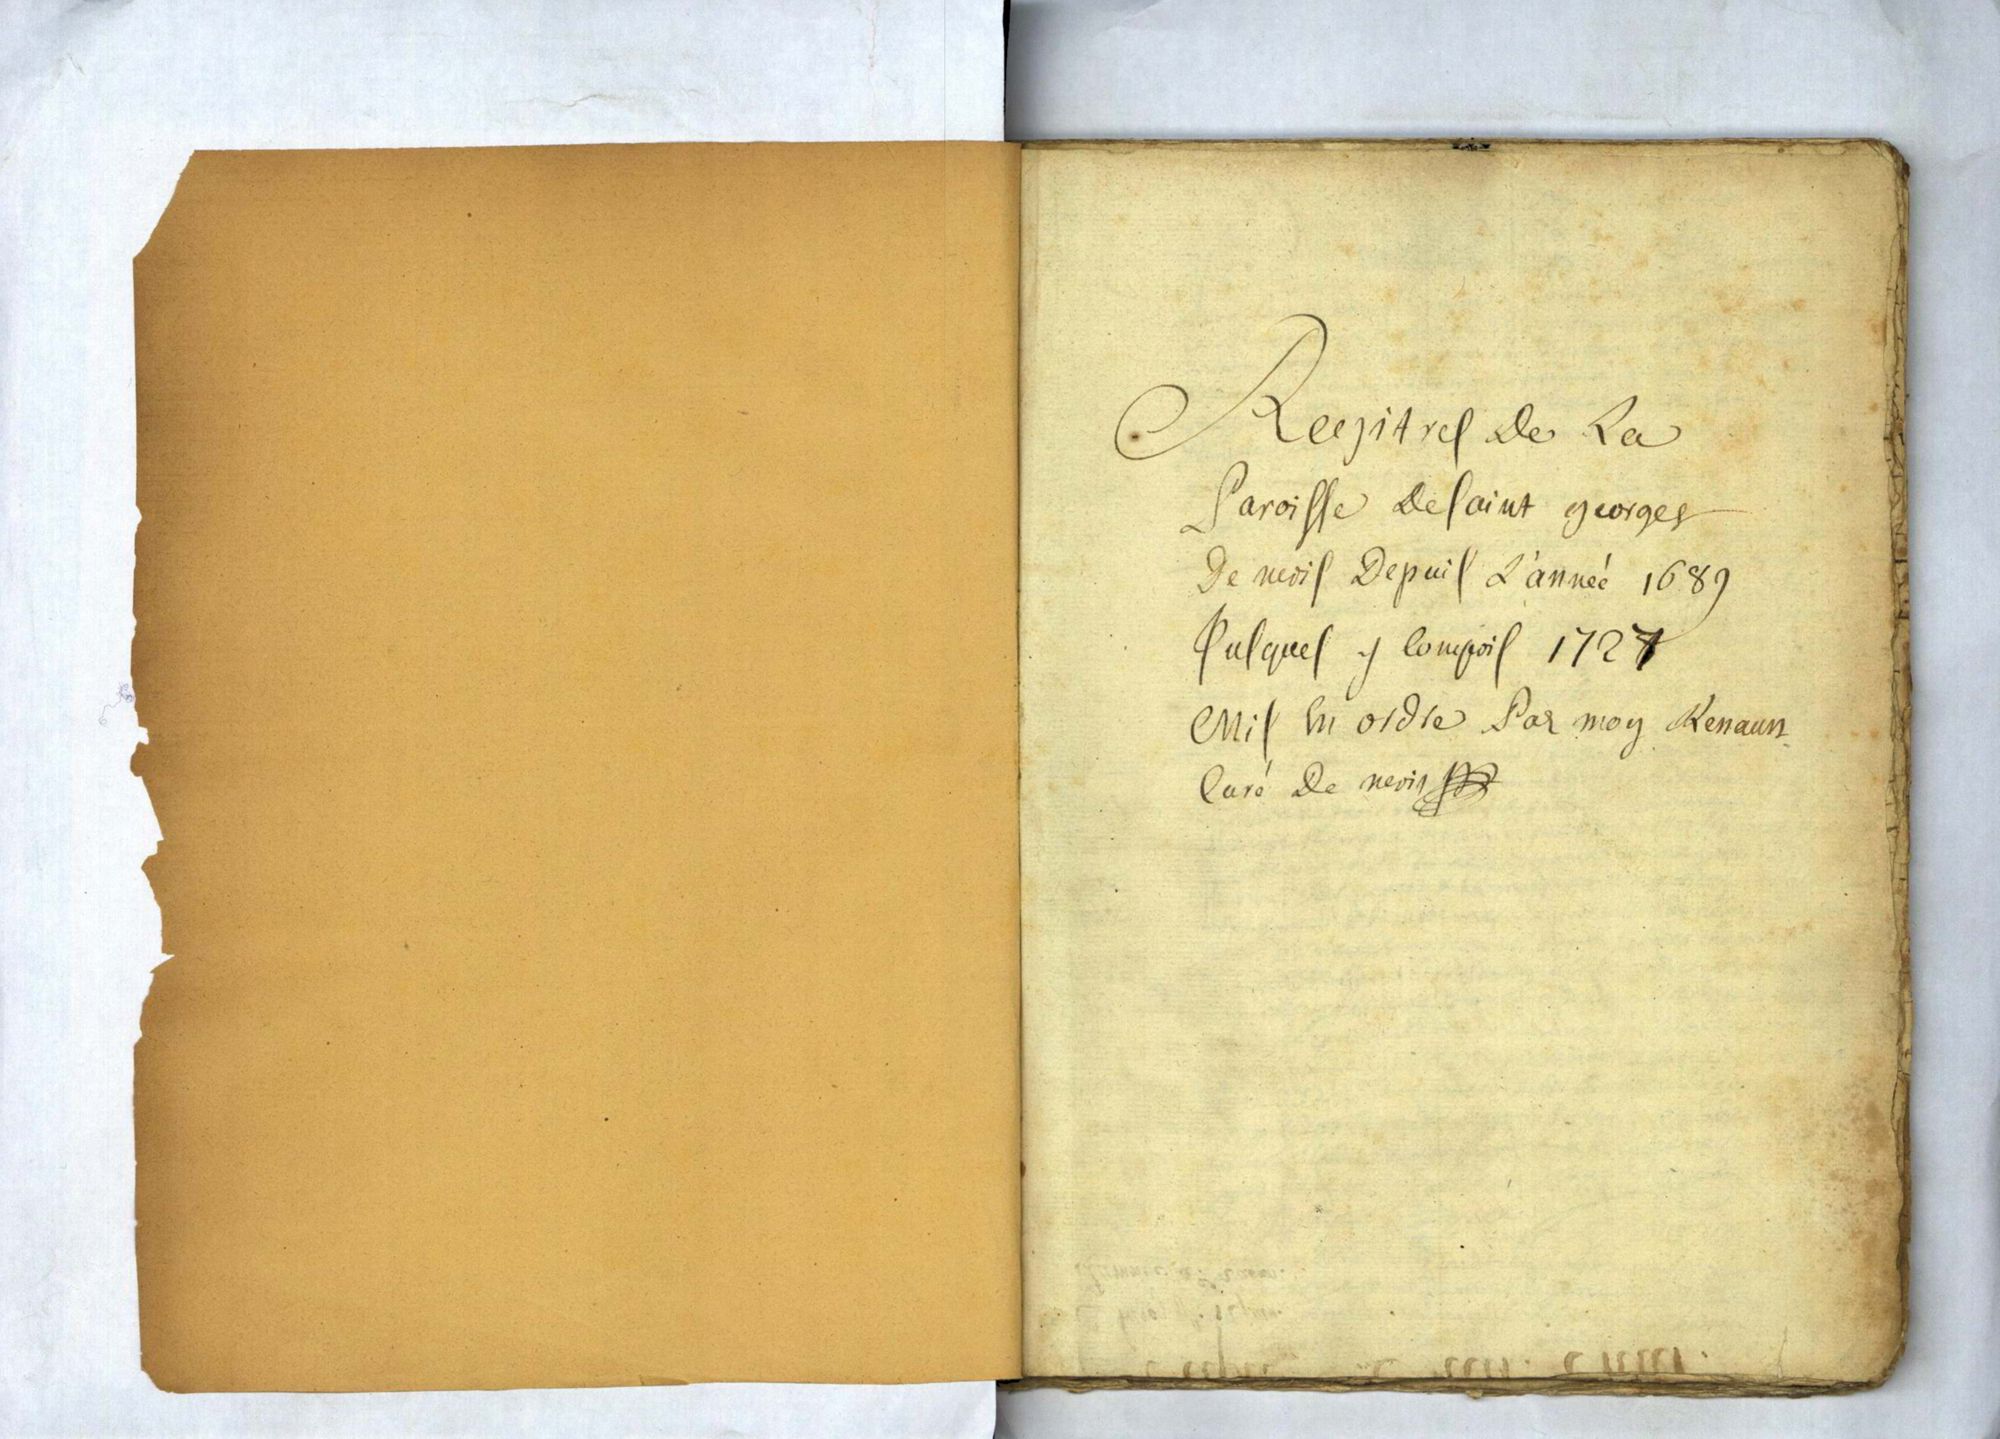 Regitres De La
Paroisse De saint georges
De nevis Depuis L'année 1689
Jusques y Compris 1727
Mis En ordre Par moy Renaun
Curé De nevis